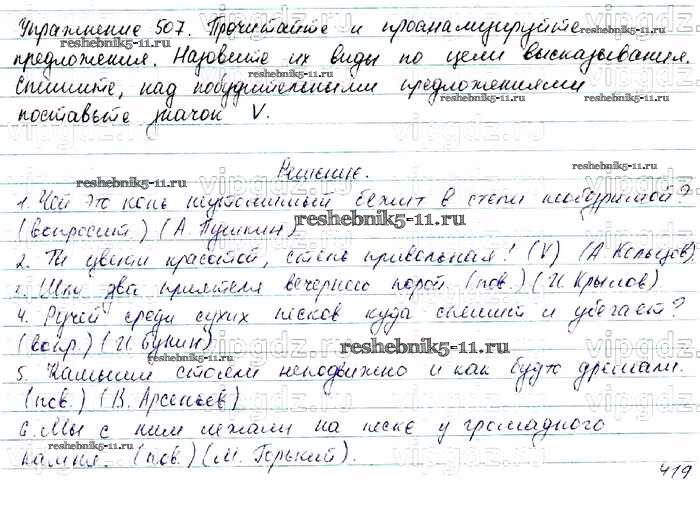 Упражнение 507. Прочитайте и проанализируйте
предложения. Назовите их виды по цели высказывания.
Спишите, над побудительными предложениями
поставьте значок V.
Решение.
1. Чей это конь неутомимый бежит в степи необозримой?
(вопросит.) (А. Пушкин)
2. Ты цвети красотой, степь привольная! (V) (А. Кольцов).
3. Шли два приятеля вечернею порой. (пов.) (И. Крылов).
4. Ручей среди сухих песков куда спешит и убегает?
(вопр.) (И. Бунин)
5. Камыши стояли неподвижно и как будто дремали.
(пов.) (В. Арсеньев)
6. Мы с ним лежали на песке у громадного
камня. (пов.) (М. Горький).
419
reshebnik5-11.ru
vipgdz.ru